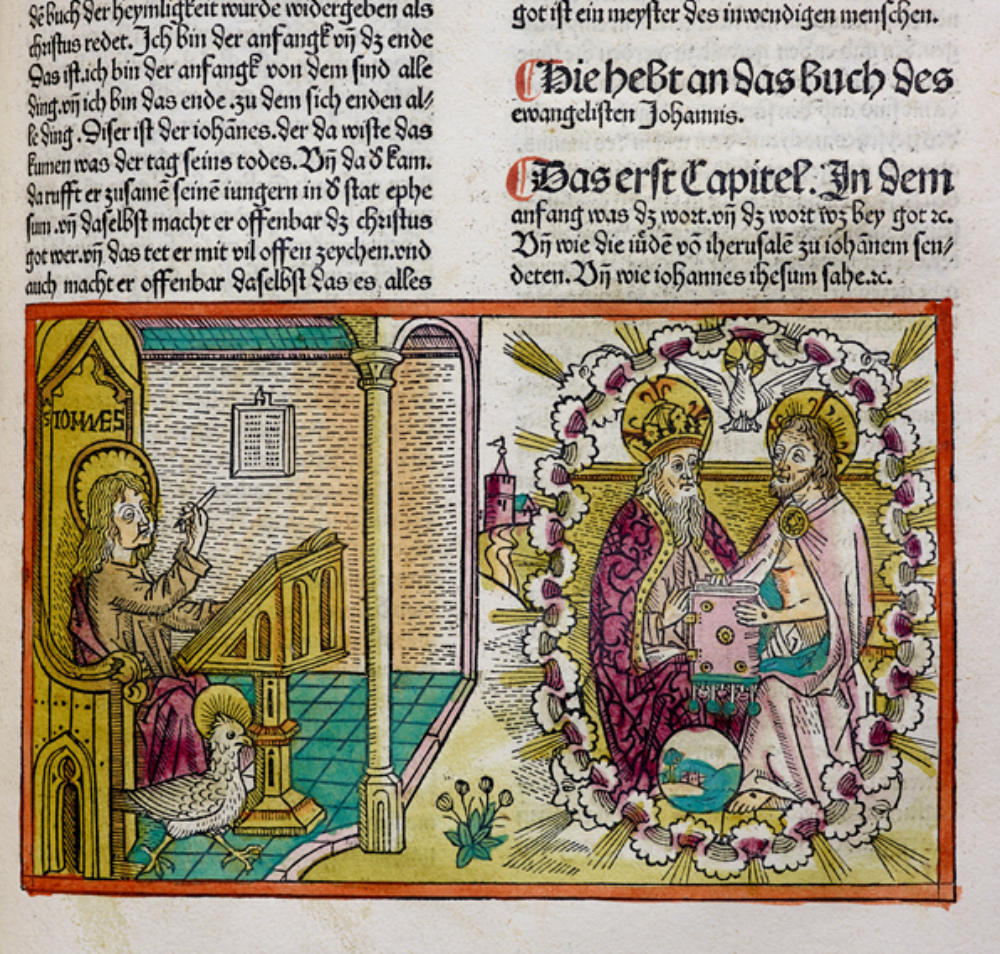 dē buch der heymligkeit wurde widergeben als
christus redet. Ich bin der anfangk vñ dz ende
Das ist.ich bin der anfangk von dem sind alle
ding.vñ ich bin das ende .zu dem sich enden al⸗
le ding .Diser ist der iohānes.der da wiste das
kumen was der tag seins todes. Vñ da d̕ kam.
da rufft er zusamē seinē iungern in d̕ stat ephe
sum .vñ daselbst macht er offenbar dz christus
got wer.vñ das tet er mit vil offen zeychen.vnd
auch macht er offenbar daselbst das es alles
got ist ein meyster des inwendigen menschen.
Hie hebt an das buch des
ewangelisten Johannis.
Das erst Capitel. In dem
anfang was dz wort.vñ dz wort wz bey got ⁊c.
Vñ wie die iüdē vō iherusalē zu iohānem sen⸗
deten. Vñ wie iohannes ihesum sahe.⁊c.
S IOHANES